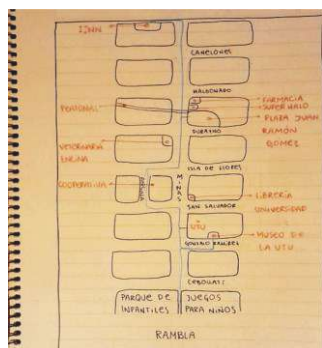 CANELONES
MALDONADO
PEATONAL
FARMACIA
PLAZA JUAN
RAMÓN
GOMEZ
DURAZNO
VETERINARIA
ISLA DE FLORES
COOPERATIVA
MINAS
LIBRERÍA
UNIVERSIDAD
SAN SALVADOR
UTU
MUSEO DE
LA UTU
GONZALO RAMIREZ
CEBOLLATI
PARQUE DE
INFANTILES
JUEGOS
PARA NIÑOS
RAMBLA